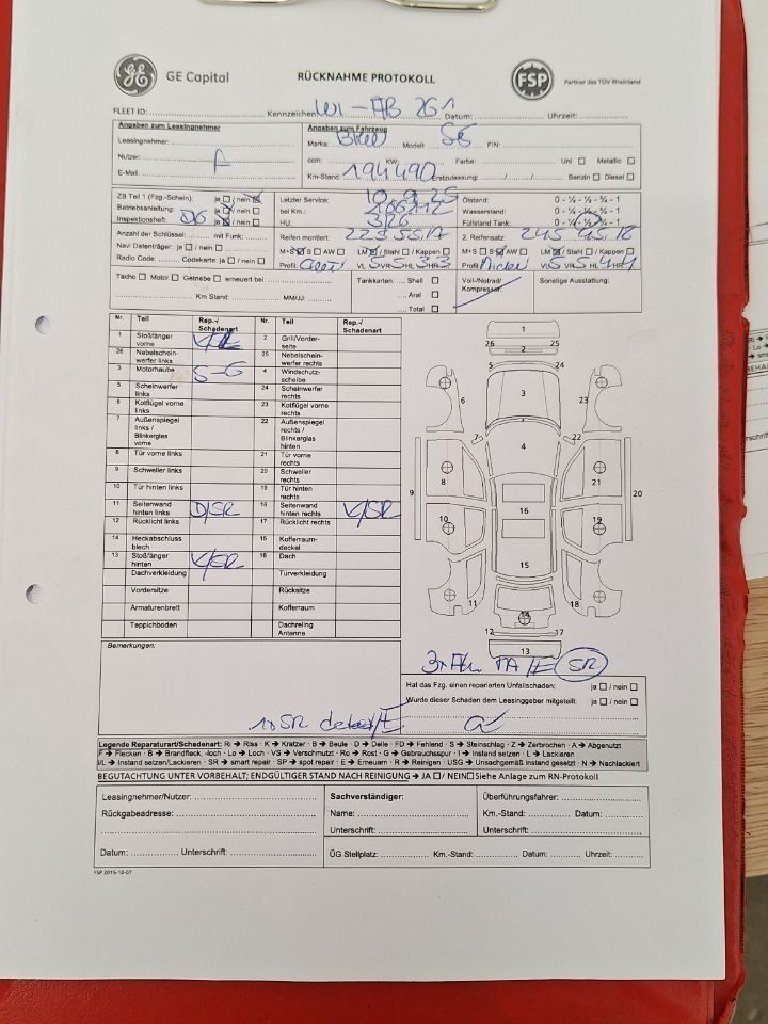 GE Capital RÜCKNAHME PROTOKOLL FSP Partner des TÜV Rheinland
FLEET ID: Kennzeichen: WI-AB 261 Datum: Uhrzeit:
Angaben zum Leasingnehmer Angaben zum Fahrzeug
Leasingnehmer: Marke: Modell: FIN:
Nutzer: ccm: KW: Farbe: Uni Metallic
E-Mail: Km-Stand: 194490 Erstzulassung: / / Benzin Diesel
ZB Teil 1 (Fzg.-Schein): ja / nein Letzter Service: 10.9.25 Ölstand: 0 - ¼ - ½ - ¾ - 1
Betriebsanleitung: ja / nein bei Km.: Wasserstand: 0 - ¼ - ½ - ¾ - 1
Inspektionsheft: ja / nein HU: 3/26 Füllstand Tank: 0 - ¼ - ½ - ¾ - 1
Anzahl der Schlüssel: mit Funk: Reifen montiert: 225 55 17 2. Reifensatz: 245 45 18
Navi Datenträger: ja / nein M+S / S / AW LM / Stahl / Kappen M+S / S / AW LM / Stahl / Kappen
Radio Code: Codekarte: ja / nein Profil: VL 5 VR 5 HL 3 HR 3 Profil: VL 5 VR 5 HL 4 HR 4
Tacho Motor Getriebe erneuert bei Tankkarten: Shell Voll-/Notrad/ Sonstige Ausstattung:
Kompressor
Km Stand: MM/JJ: Aral
Total
Nr. Teil Rep.-/ Schadenart Nr. Teil Rep.-/ Schadenart
1 Stoßfänger vorne K/E 2 Grill/Vorderseite
26 Nebelscheinwerfer links 25 Nebelscheinwerfer rechts
3 Motorhaube S-G 4 Windschutzscheibe
5 Scheinwerfer links 24 Scheinwerfer rechts
6 Kotflügel vorne links 23 Kotflügel vorne rechts
7 Außenspiegel links / Blinkerglas vorne 22 Außenspiegel rechts / Blinkerglas hinten
8 Tür vorne links 21 Tür vorne rechts
9 Schweller links 20 Schweller rechts
10 Tür hinten links 19 Tür hinten rechts
11 Seitenwand hinten links D/SR 18 Seitenwand hinten rechts K/SR
12 Rücklicht links 17 Rücklicht rechts
14 Heckabschlussblech 15 Kofferraumdeckel
13 Stoßfänger hinten K/SR 16 Dach
Dachverkleidung Türverkleidung
Vordersitze Rücksitze
Armaturenbrett Kofferraum
Teppichboden Dachreling Antenne
1
26 25
2
5 24
6 3 23
7 22
4
8 21
9 20
16
10 19
15
11 18
14
12 17
13
Bemerkungen:
SR
Hat das Fzg. einen reparierten Unfallschaden: ja / nein
Wurde dieser Schaden dem Leasinggeber mitgeteilt: ja / nein
1x SR defekt/E
Legende Reparaturart/Schadenart: Ri → Riss · K → Kratzer · B → Beule · D → Delle · FD → Fehlend · S → Steinschlag · Z → Zerbrochen · A → Abgenutzt
F → Flecken · B → Brandfleck, -loch · Lo → Loch · VS → Verschmutzt · Ro → Rost · G → Gebrauchsspur · I → Instand setzen · L → Lackieren
I/L → Instand setzen/Lackieren · SR → smart repair · SP → spot repair · E → Erneuern · R → Reinigen · USG → Unsachgemäß instand gesetzt · N → Nachlackiert
BEGUTACHTUNG UNTER VORBEHALT; ENDGÜLTIGER STAND NACH REINIGUNG → JA / NEIN Siehe Anlage zum RN-Protokoll
Leasingnehmer/Nutzer: Sachverständiger: Überführungsfahrer:
Rückgabeadresse: Name: Km.-Stand: Datum:
Unterschrift: Unterschrift:
Datum: Unterschrift: ÜG Stellplatz: Km.-Stand: Datum: Uhrzeit:
FSP 2015-10-07